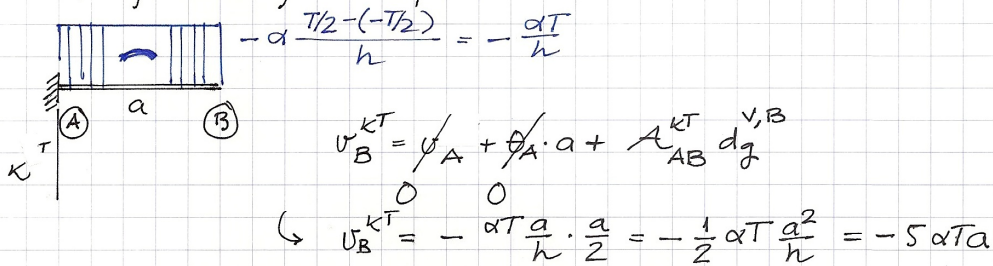 - α T/2 - (-T/2) / h = - αT/h
A a B
K^T
v_B^{KT} = v_A + θ_A · a + A_{AB}^{KT} d_g^{V,B}
0 0
↳ v_B^{KT} = - αT a/h · a/2 = - 1/2 αT a²/h = - 5 αTa